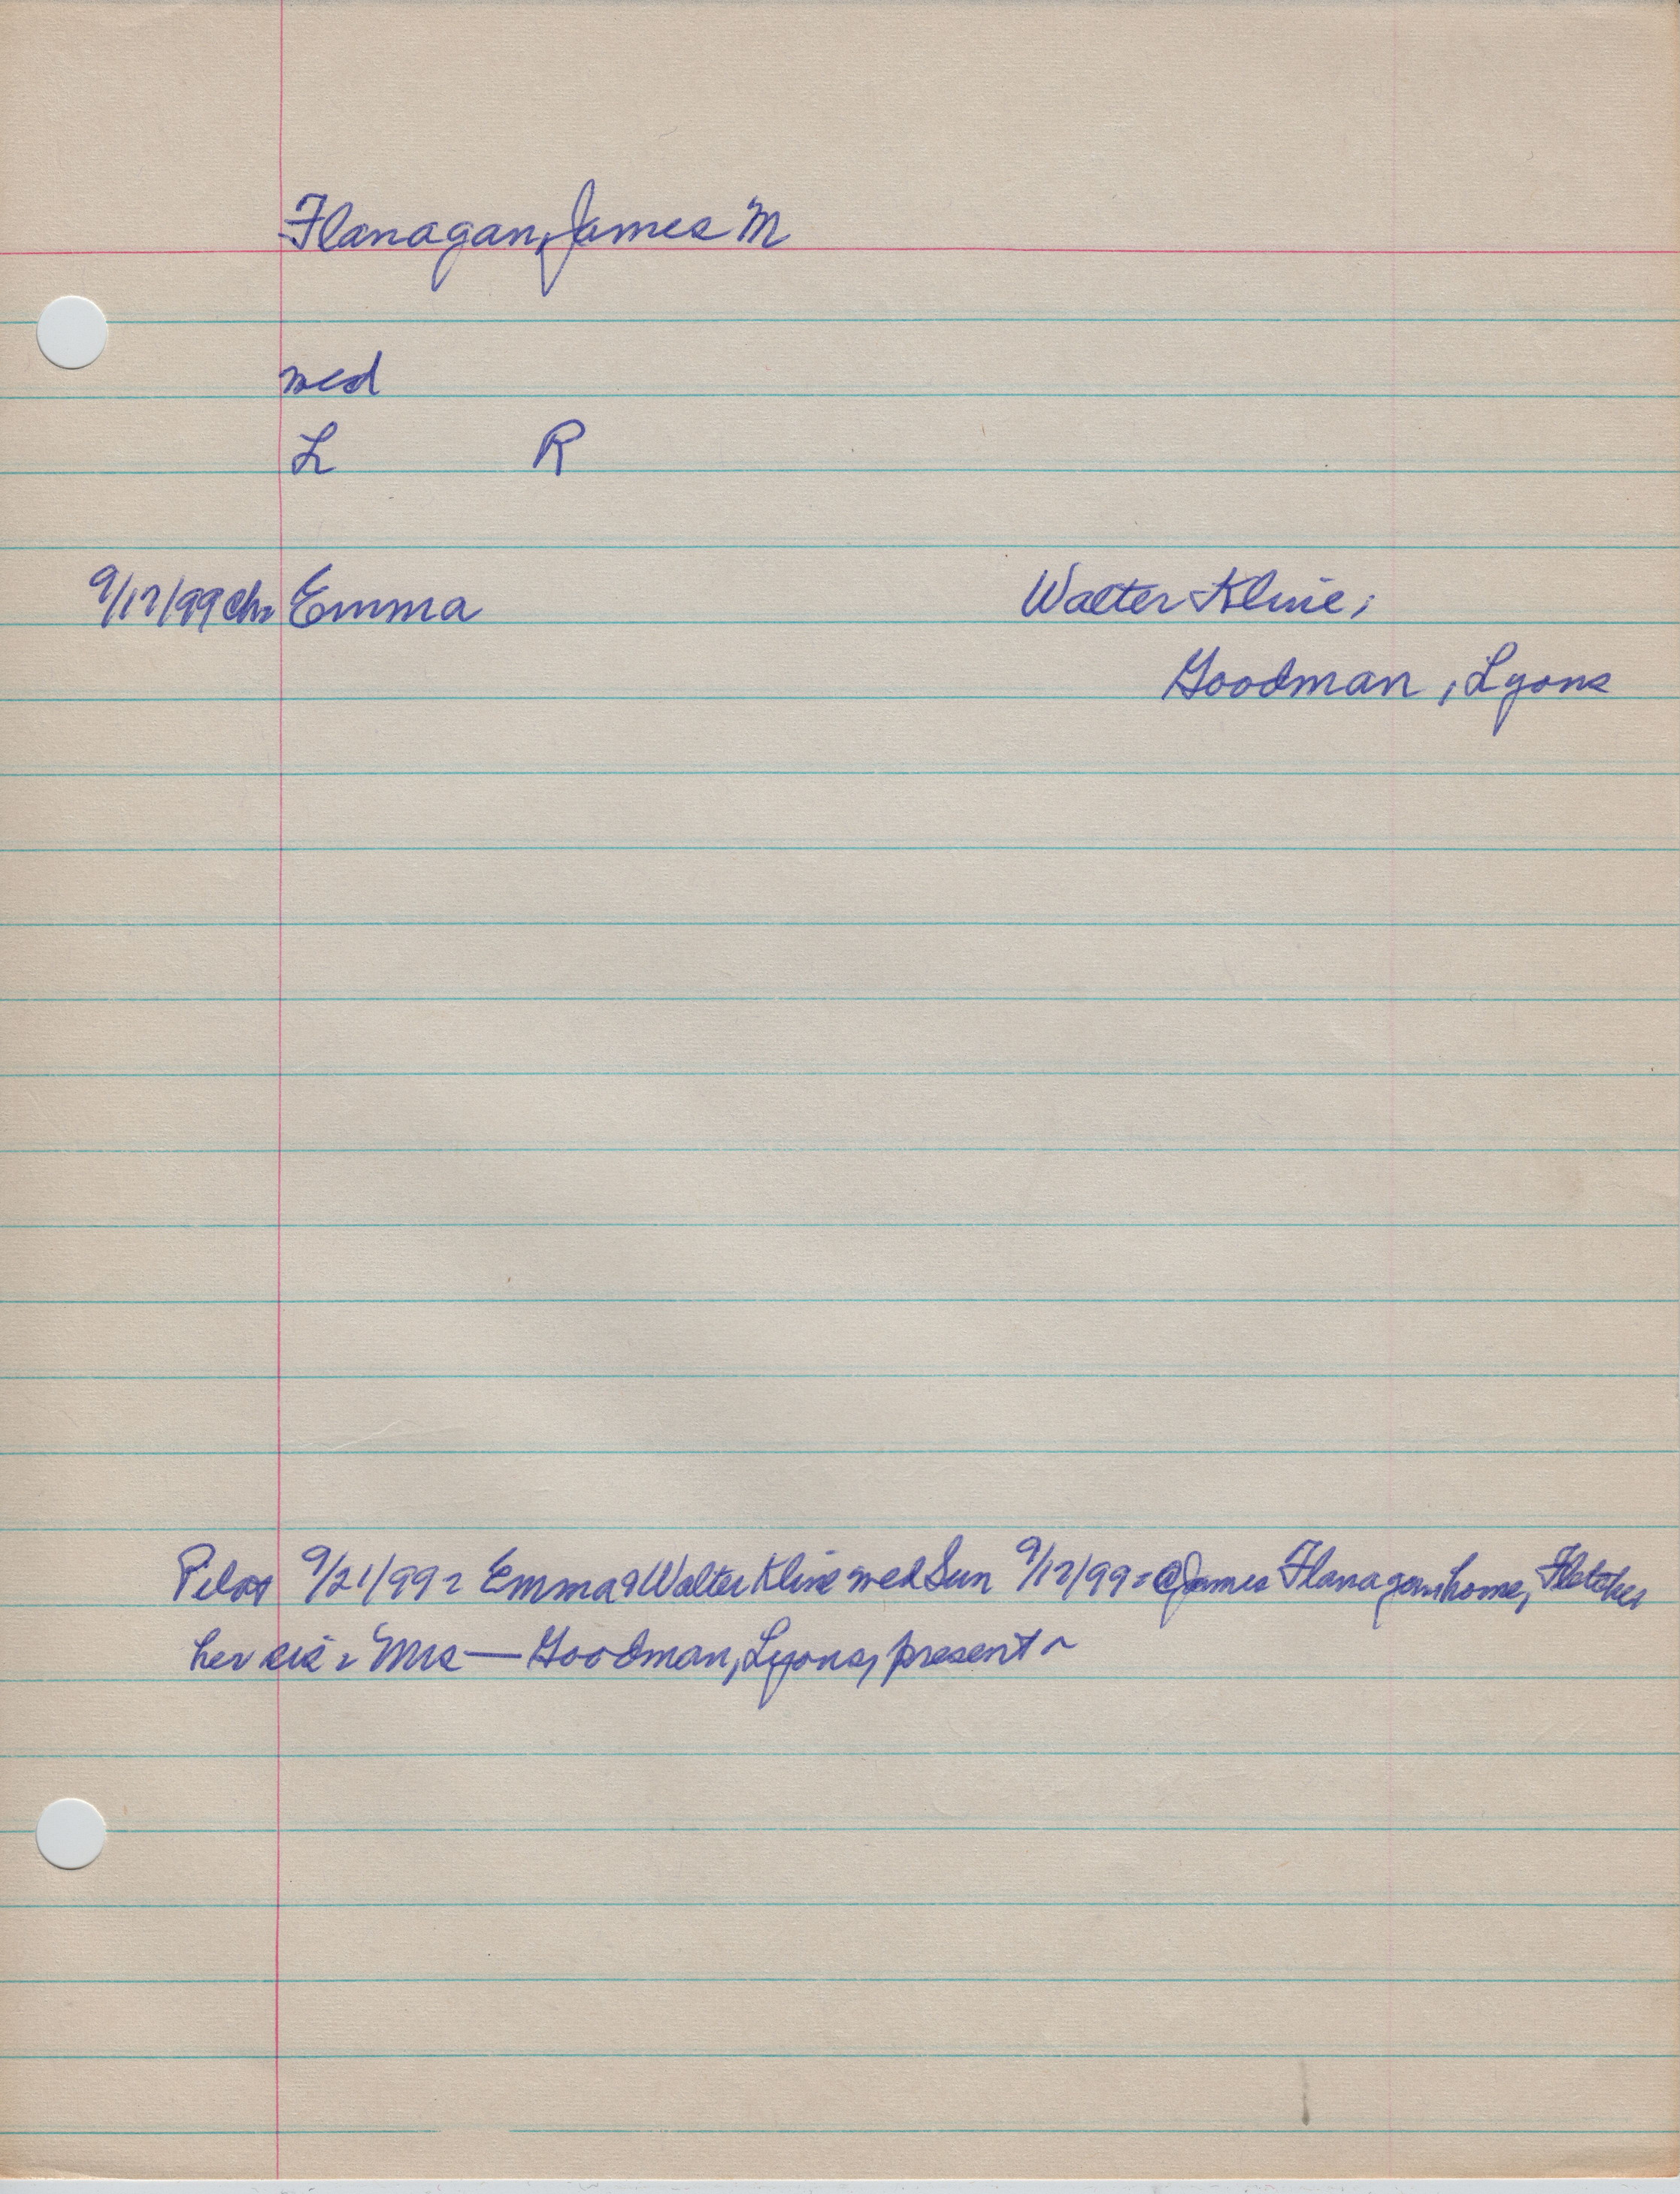 Flanagan, James M
med
L R
9/17/99 Ch: Emma Walter Kline;
Goodman, Lyons
Pilot 9/21/99: Emma & Walter Kline med Sun 9/17/99: @ James Flanagan home, Fletcher
her sis: Mrs — Goodman, Lyons, present